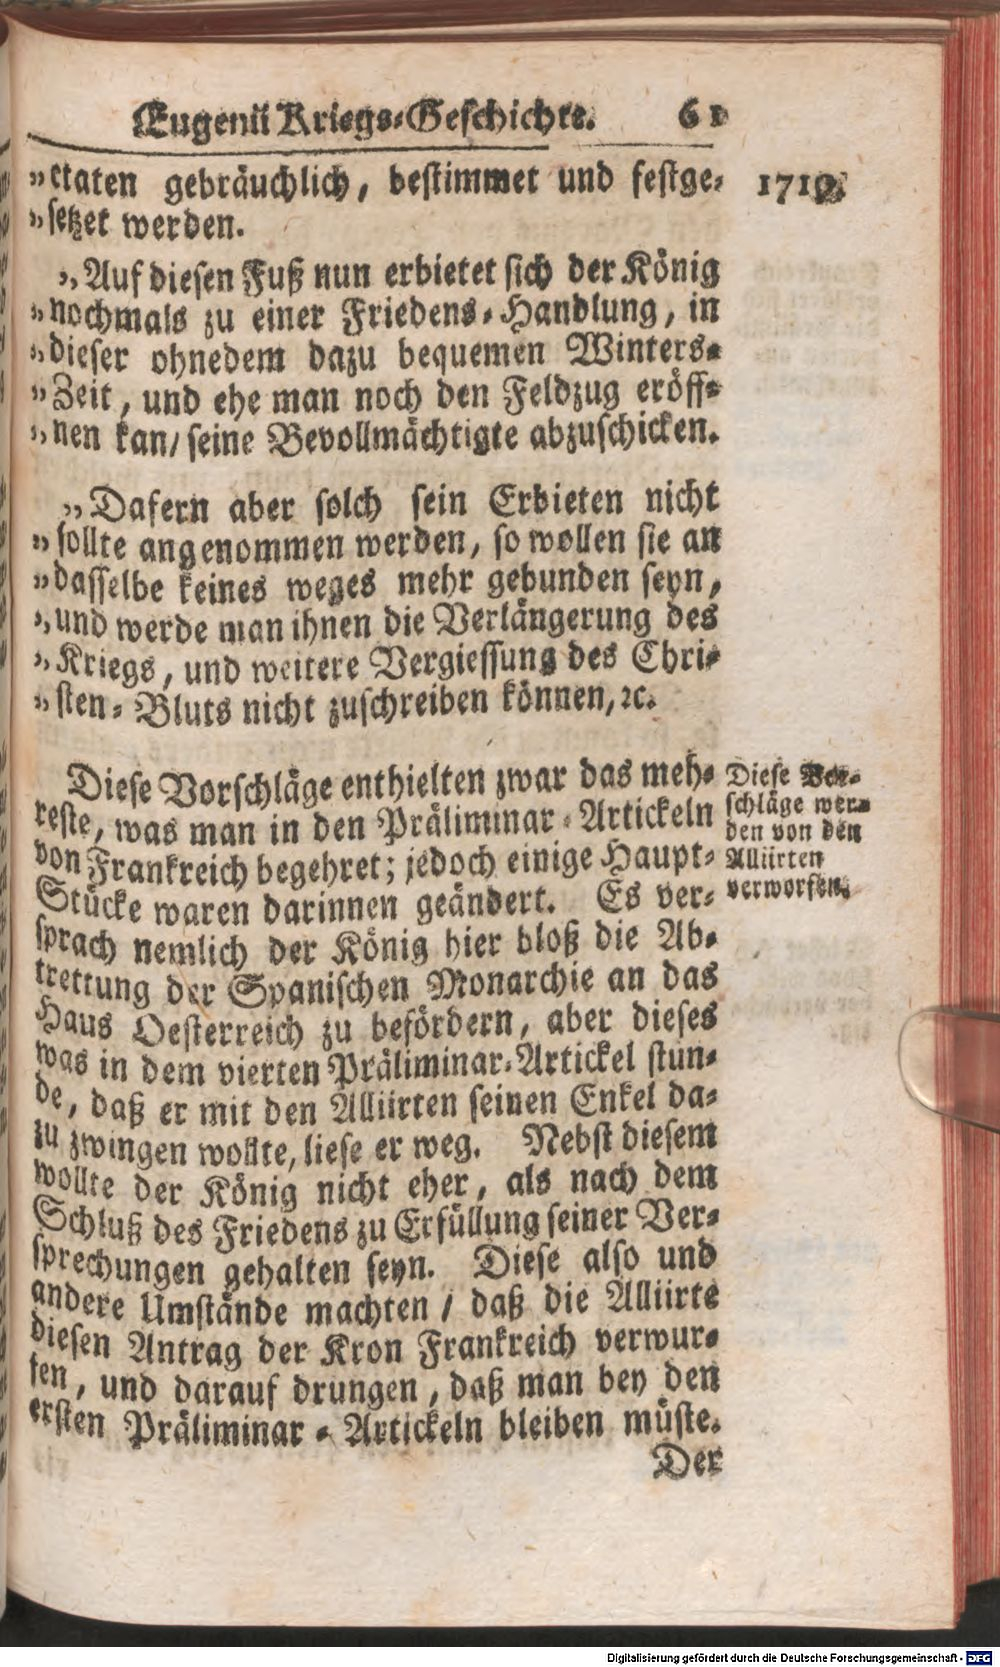 Eugenii Kriegs-Geschichte. 61
„ctaten gebräuchlich, bestimmet und festge- 1710.
„setzet werden.
„Auf diesen Fuß nun erbietet sich der König
„nochmals zu einer Friedens-Handlung, in
„dieser ohnedem dazu bequemen Winters-
„Zeit, und ehe man noch den Feldzug eröff-
„nen kan/ seine Bevollmächtigte abzuschicken.
„Dafern aber solch sein Erbieten nicht
„sollte angenommen werden, so wollen sie an
„dasselbe keines weges mehr gebunden seyn,
„und werde man ihnen die Verlängerung des
„Kriegs, und weitere Vergiessung des Chri-
„sten-Bluts nicht zuschreiben können, ꝛc.
Diese Vorschläge enthielten zwar das meh-
reste, was man in den Präliminar-Artickeln
von Franckreich begehret; jedoch einige Haupt-
Stücke waren darinnen geändert. Es ver-
sprach nemlich der König hier bloß die Ab-
trettung der Spanischen Monarchie an das
Haus Oesterreich zu befördern, aber dieses
was in dem vierten Präliminar-Artickel stun-
de, daß er mit den Alliirten seinen Enkel da-
zu zwingen wollte, liese er weg. Nebst diesem
wollte der König nicht eher, als nach dem
Schluß des Friedens zu Erfüllung seiner Ver-
sprechungen gehalten seyn. Diese also und
andere Umstände machten / daß die Alliirte
diesen Antrag der Kron Frankreich verwur-
fen, und darauf drungen, daß man bey den
ersten Präliminar-Artickeln bleiben müste.
Der
Diese Vor-
schläge wer-
den von den
Alliirten
verworfen.
Digitalisierung gefördert durch die Deutsche Forschungsgemeinschaft - DFG